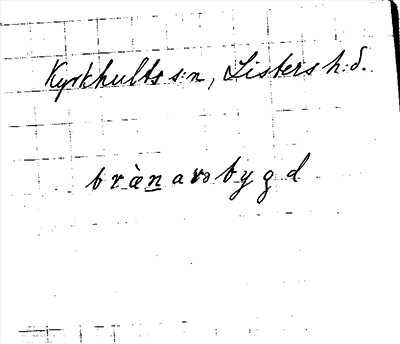 Kyrkhults s:n, Listers h:d.
bræ̀n̲arəbygd